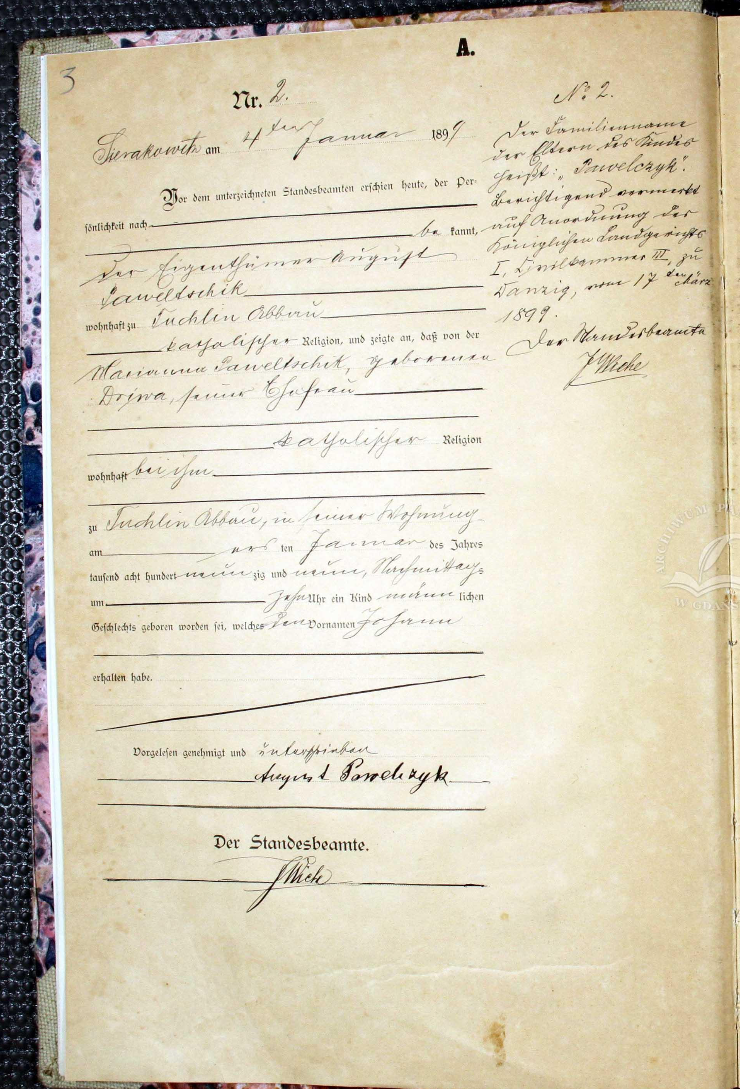 3
A.
Nr. 2.
Sierakowitz am 4ten Januar 1899
Vor dem unterzeichneten Standesbeamten erschien heute, der Per-
sönlichkeit nach
be kannt,
der Eigenthümer August
Paweltschik
wohnhaft zu Tuchlin Abbau
katholischer Religion, und zeigte an, daß von der
Marianna Paweltschik, geborenen
seiner Ehefrau
katholischer Religion
wohnhaft bei ihm
zu Tuchlin Abbau, in seiner Wohnung
am ersten Januar des Jahres
tausend acht hundert neun zig und neun, Nachmittags
um zehn Uhr ein Kind männ lichen
Geschlechts geboren worden sei, welches den Vornamen Johann
erhalten habe.
Vorgelesen genehmigt und unterschrieben
August Pawelczyk
Der Standesbeamte.
No 2.
Der Familienname
der Eltern des Kindes
heißt: „Pawelczyk".
Berichtigend vermerkt
auf Anordnung des
Königlichen Landgerichts
I, Civilkammer III, zu
Danzig, vom 17ten März
1899.
Der Standesbeamte